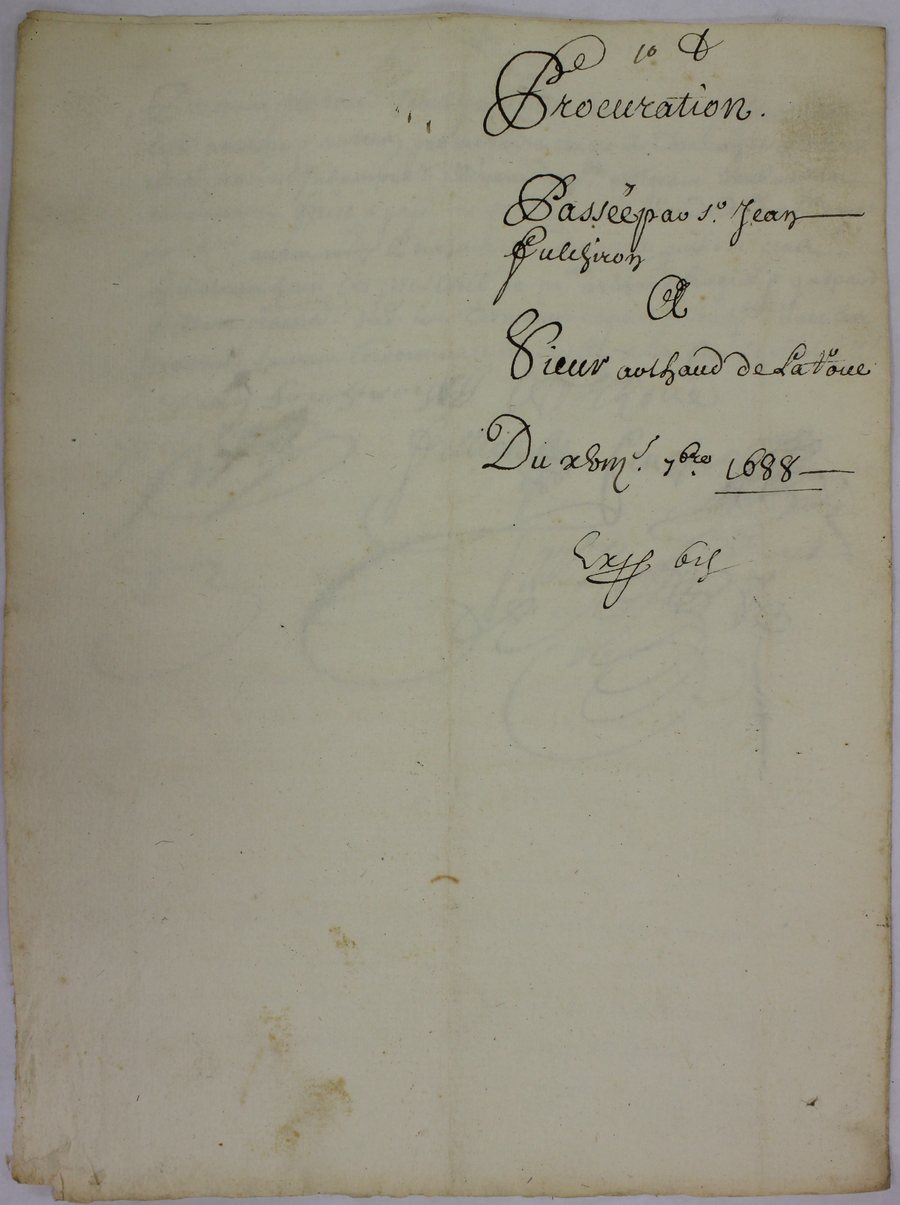 10
Procuration.
Passée par sr. Jean
fulchiron
A
Sieur arthaud de Latour
Du xbiije. 7bre 1688